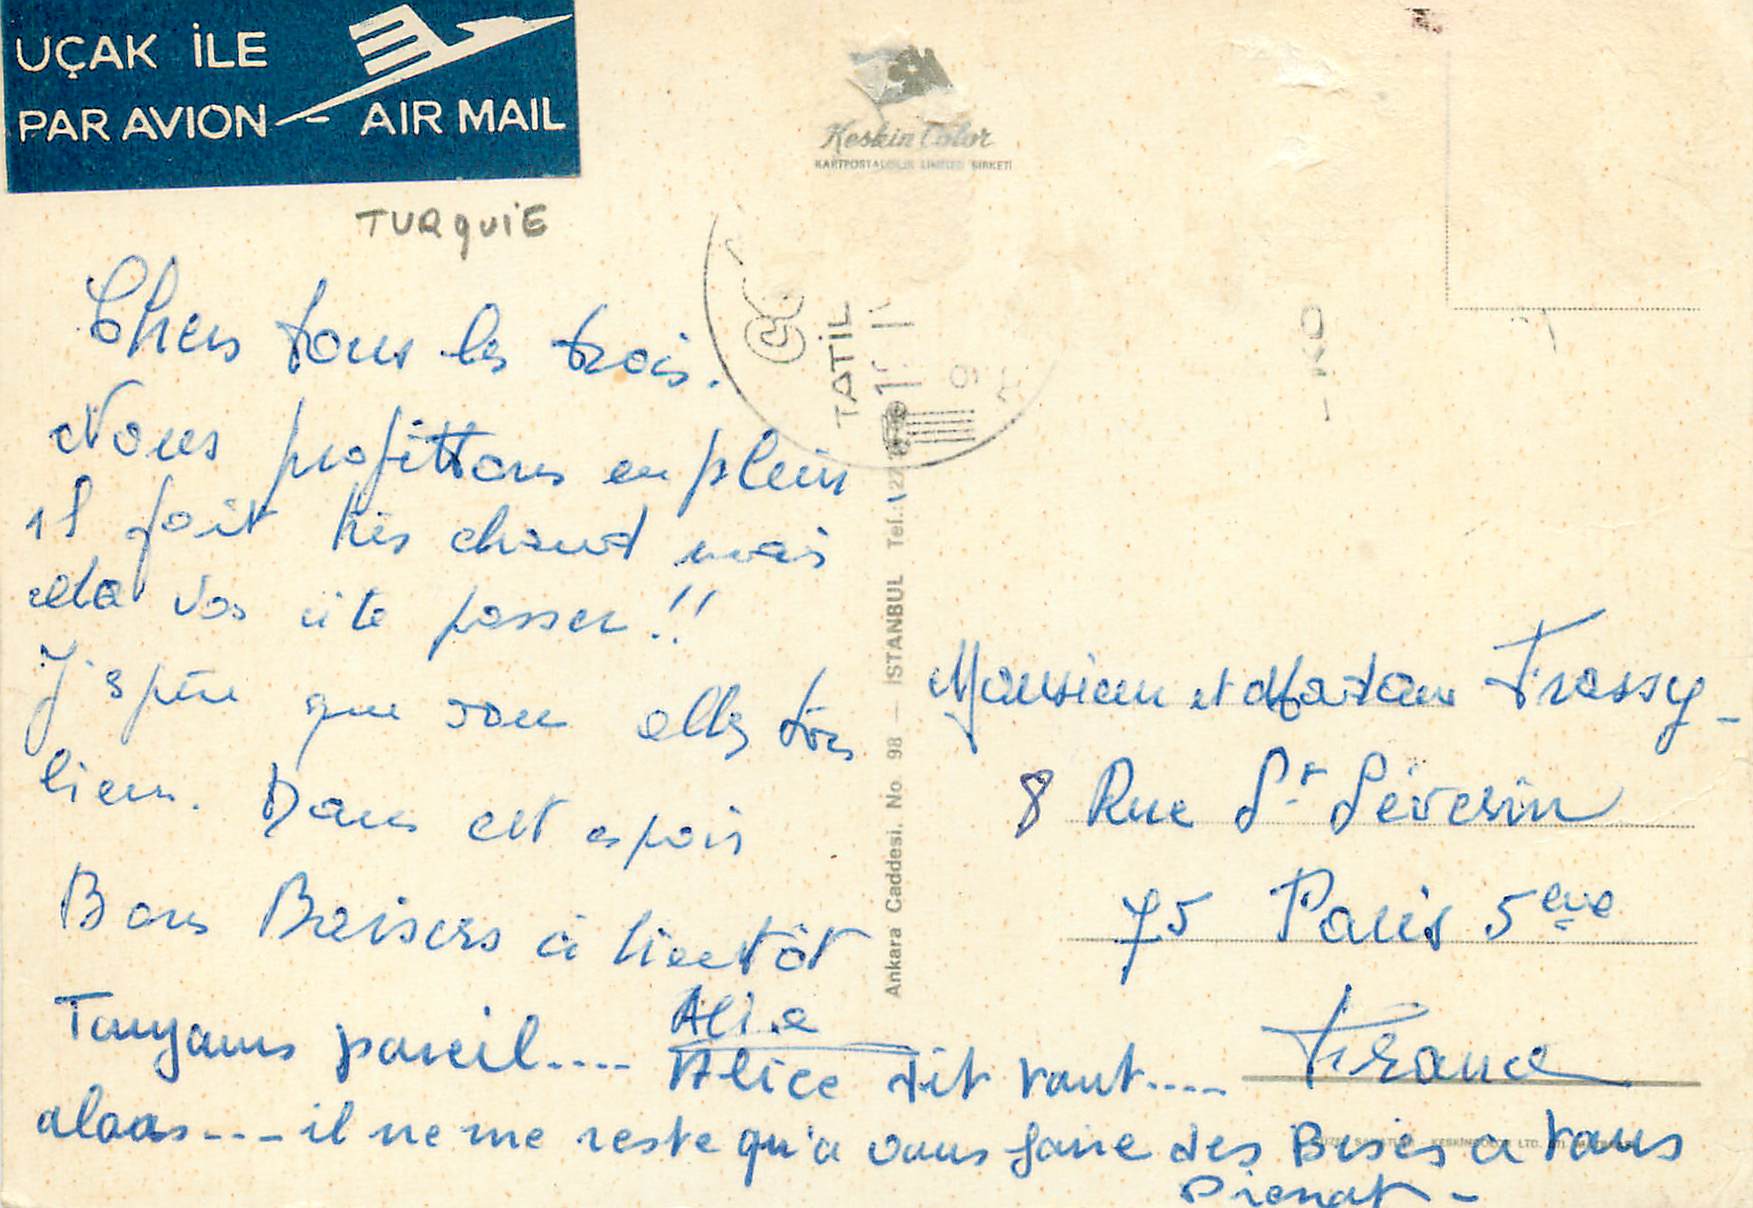 UÇAK İLE
PAR AVION AIR MAIL
TURQUIE
Keskin Color
KARTPOSTALCILIK LIMITED ŞIRKETI
TATİL
9
Chers tous les trois.
Nous profittons en plein
il fait très chaud mais
cela vas vite passer !!
J'espère que vous allez très
bien. Dans cet espoir
Bons Baisers à bientôt
Alice
Toujours pareil.... Alice dit tout....
alors---il ne me reste qu'a vous faire des Bises a tous
Ankara Caddesi. No 98 — ISTANBUL Tel.:
Monsieur et Madame Frassy-
8 Rue St Séverin
75 Paris 5eme
France